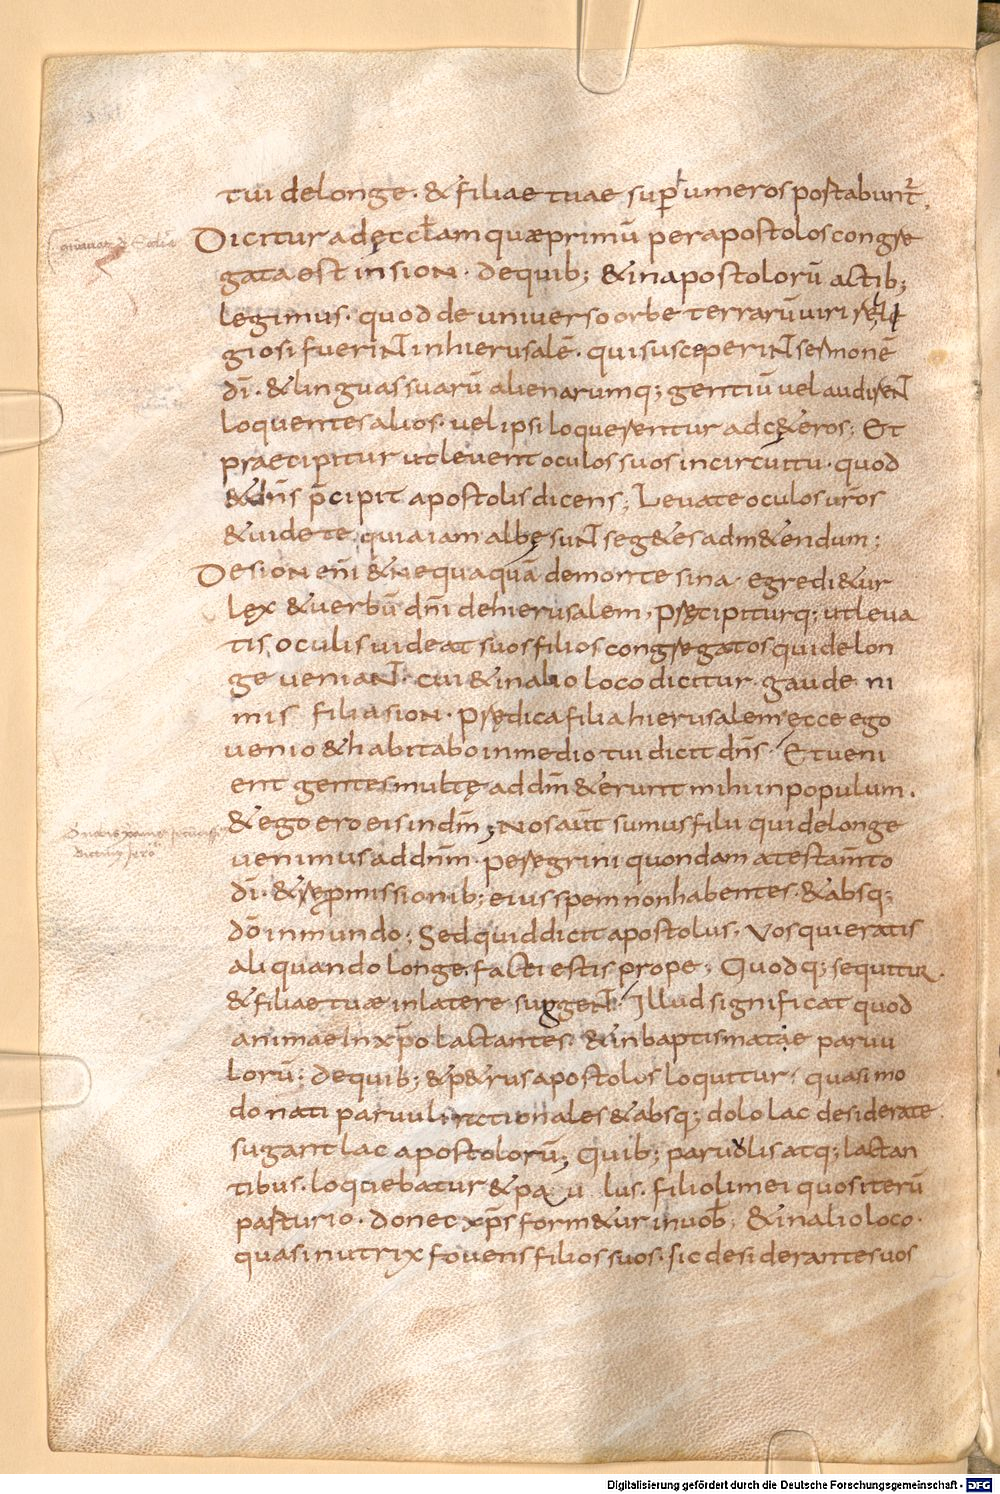 tui delonge. & filiae tuae sup umeros portabunt̃.
Dicitur ad ęccl̃am quæ primū per apostolos congre
gata est in sion. de quib; & in apostolorū actib;
legimus. quod de universo orbe terrarū viri reli
giosi fuerint in hierusalē. qui susceperint sermonē
dī. & linguas suarū alienarumq; gentiū vel audirent
loquentes alios. vel ipsi loquerentur ad c&eros; Et
praecipitur ut levent oculos suos in circuitu. quod
& dn̄s p̄cipit apostolis dicens; Levate oculos ur̄os
& videte quia iam albę sunt seg&es ad m&endum;
De sion enī & nequaquā de monte sina. egredi&ur
lex & verbū dn̄i de hierusalem. Pręcipiturq; ut leva
tis oculis videat suos filios congregatos qui de lon
ge veniant. cui & in alio loco dicitur. gaude ni
mis filia sion. predica filia hierusalem ecce ego
venio & habitabo in medio tui dicit dn̄s. Et veni
ent gentes multę ad dn̄m & erunt mihi in populum.
& ego ero eis in dm̄; Nos aūt sumus filii qui de longe
venimus ad dn̄m. peregrini quondam a testam̄to
dī. & repmissionib; eius spem non habentes. & absq;
dō in mundo; Sed quid dicit apostolus. Vos qui eratis
aliquando longe. facti estis prope; Quodq; sequitur.
& filiae tuæ in latere sugent. Illud significat quod
animae in xp̄o lactantes. & in baptismatae parvu
lorū; de quib; & p&rus apostolus loquitur. quasi mo
do nati parvuli rationales & absq; dolo lac desiderate.
sugant lac apostolorū; Quib; parvolis atq; lactan
tibus. loquebatur & pa u lus. filioli mei quos iterū
parturio. donec xp̄s form&ur in vob̄; & in alio loco.
quasi nutrix fovens filios suos. sic desiderantes vos
Digitalisierung gefördert durch die Deutsche Forschungsgemeinschaft - DFG